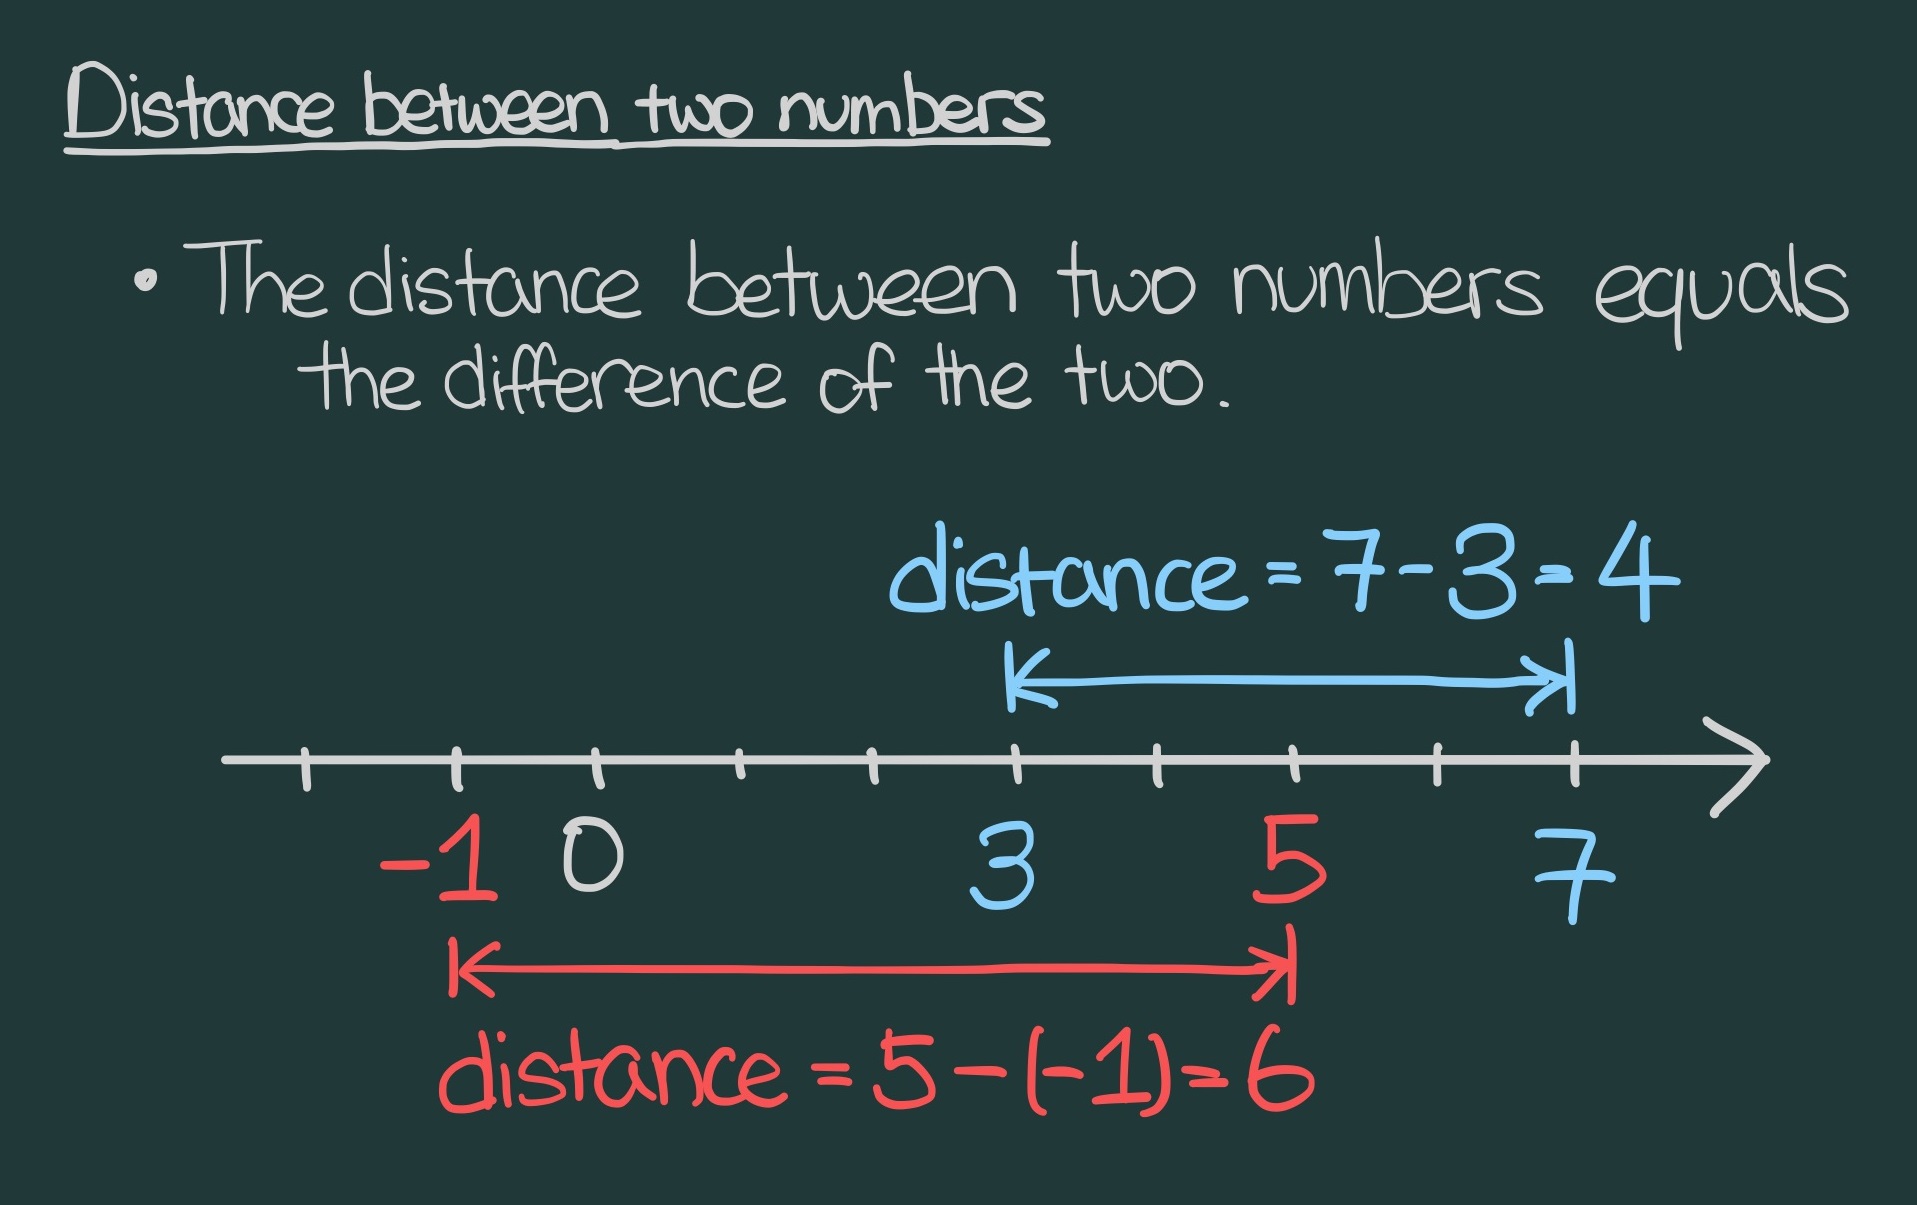 Distance between two numbers
• The distance between two numbers equals
the difference of the two.
distance = 7 - 3 = 4
-1 0 3 5 7
distance = 5 - (-1) = 6